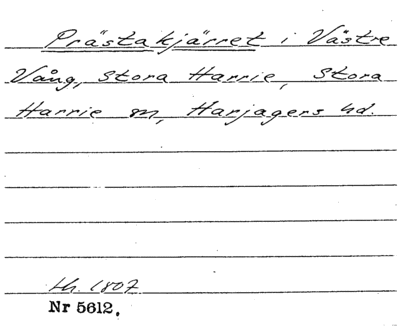 Prästakjärret i Västre
Vång, Stora Harrie, Stora
Harrie sn, Harjagers hd.
Lh. 1807
Nr 5612.